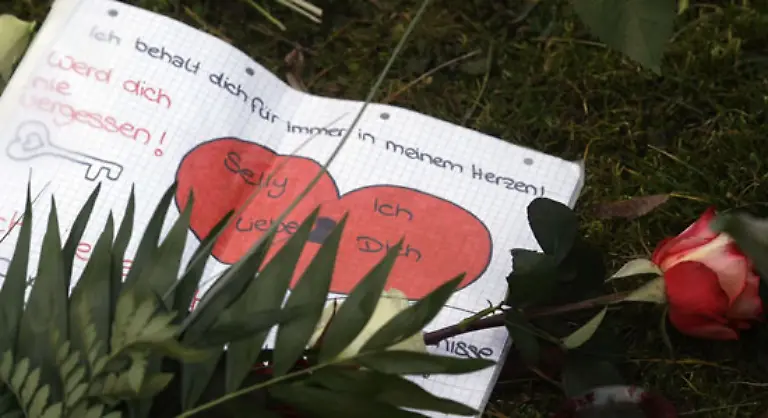 Ich behalt dich für immer in meinem Herzen!
Werd dich
nie
vergessen!
Selly
Ich
Liebe
Dich